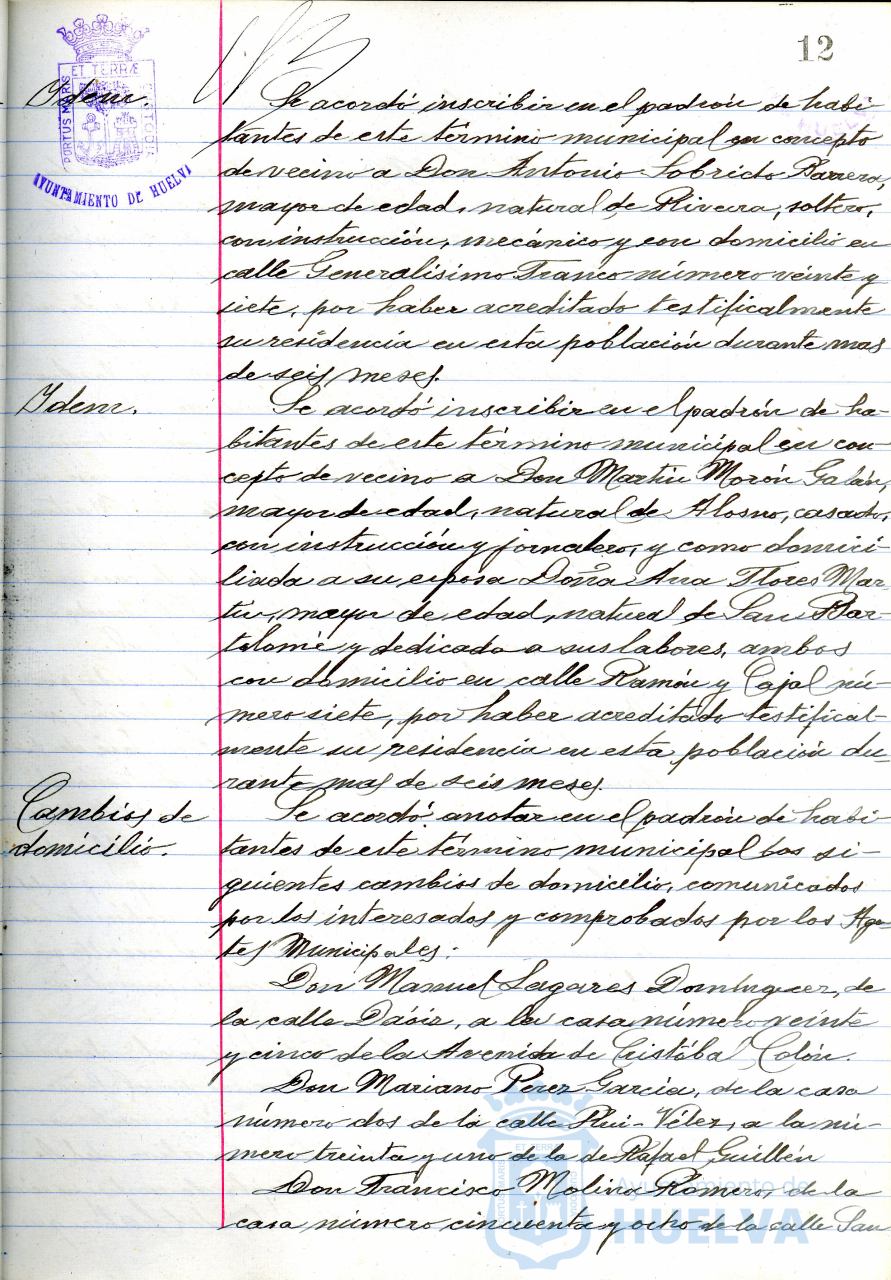 12
ET TERRÆ
PORTUS MARIS
CUSTODIA
AYUNTAMIENTO DE HUELVA
Ydem.
Se acordó inscribir en el padrón de habi-
tantes de este término municipal en concepto
de vecino a Don Antonio Sobrido Parrera,
mayor de edad, natural de Riveira, soltero,
con instrucción, mecánico y con domicilio en
calle Generalisimo Franco número veinte y
siete, por haber acreditado testificalmente
su residencia en esta población durante mas
de seis meses.
Ydem.
Se acordó inscribir en el padrón de ha-
bitantes de este término municipal en con-
cepto de vecino a Don Martin Morón Galán,
mayor de edad, natural de Alosno, casado,
con instrucción y jornalero, y como domici-
liada a su esposa Doña Ana Flores Mar-
tin, mayor de edad, natural de San Bar-
tolomé y dedicada a sus labores, ambos
con domicilio en calle Ramón y Cajal nú-
mero siete, por haber acreditado testifical-
mente su residencia en esta población du-
rante mas de seis meses.
Cambios de
domicilio.
Se acordó anotar en el padrón de habi-
tantes de este término municipal los si-
guientes cambios de domicilio, comunicados
por los interesados y comprobados por los Agen-
tes Municipales:
Don Manuel Lagares Dominguez, de
la calle Dáoiz, a la casa número veinte
y cinco de la Avenida de Cristóbal Colón.
Don Mariano Pérez García, de la casa
número dos de la calle Rui-Vélez, a la nú-
mero treinta y uno de la de Rafael Guillén
Don Francisco Molina Romero, de la
casa número cincuenta y ocho de la calle San
Ayuntamiento de
HUELVA